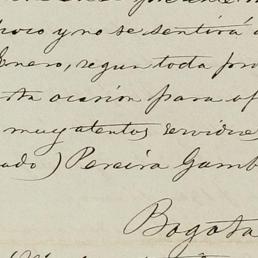 poco y no se sentirá
Enero, segun toda pro
sta ocasión para of
muy atentos servidore
ado) Pereira Gamb
Bogota